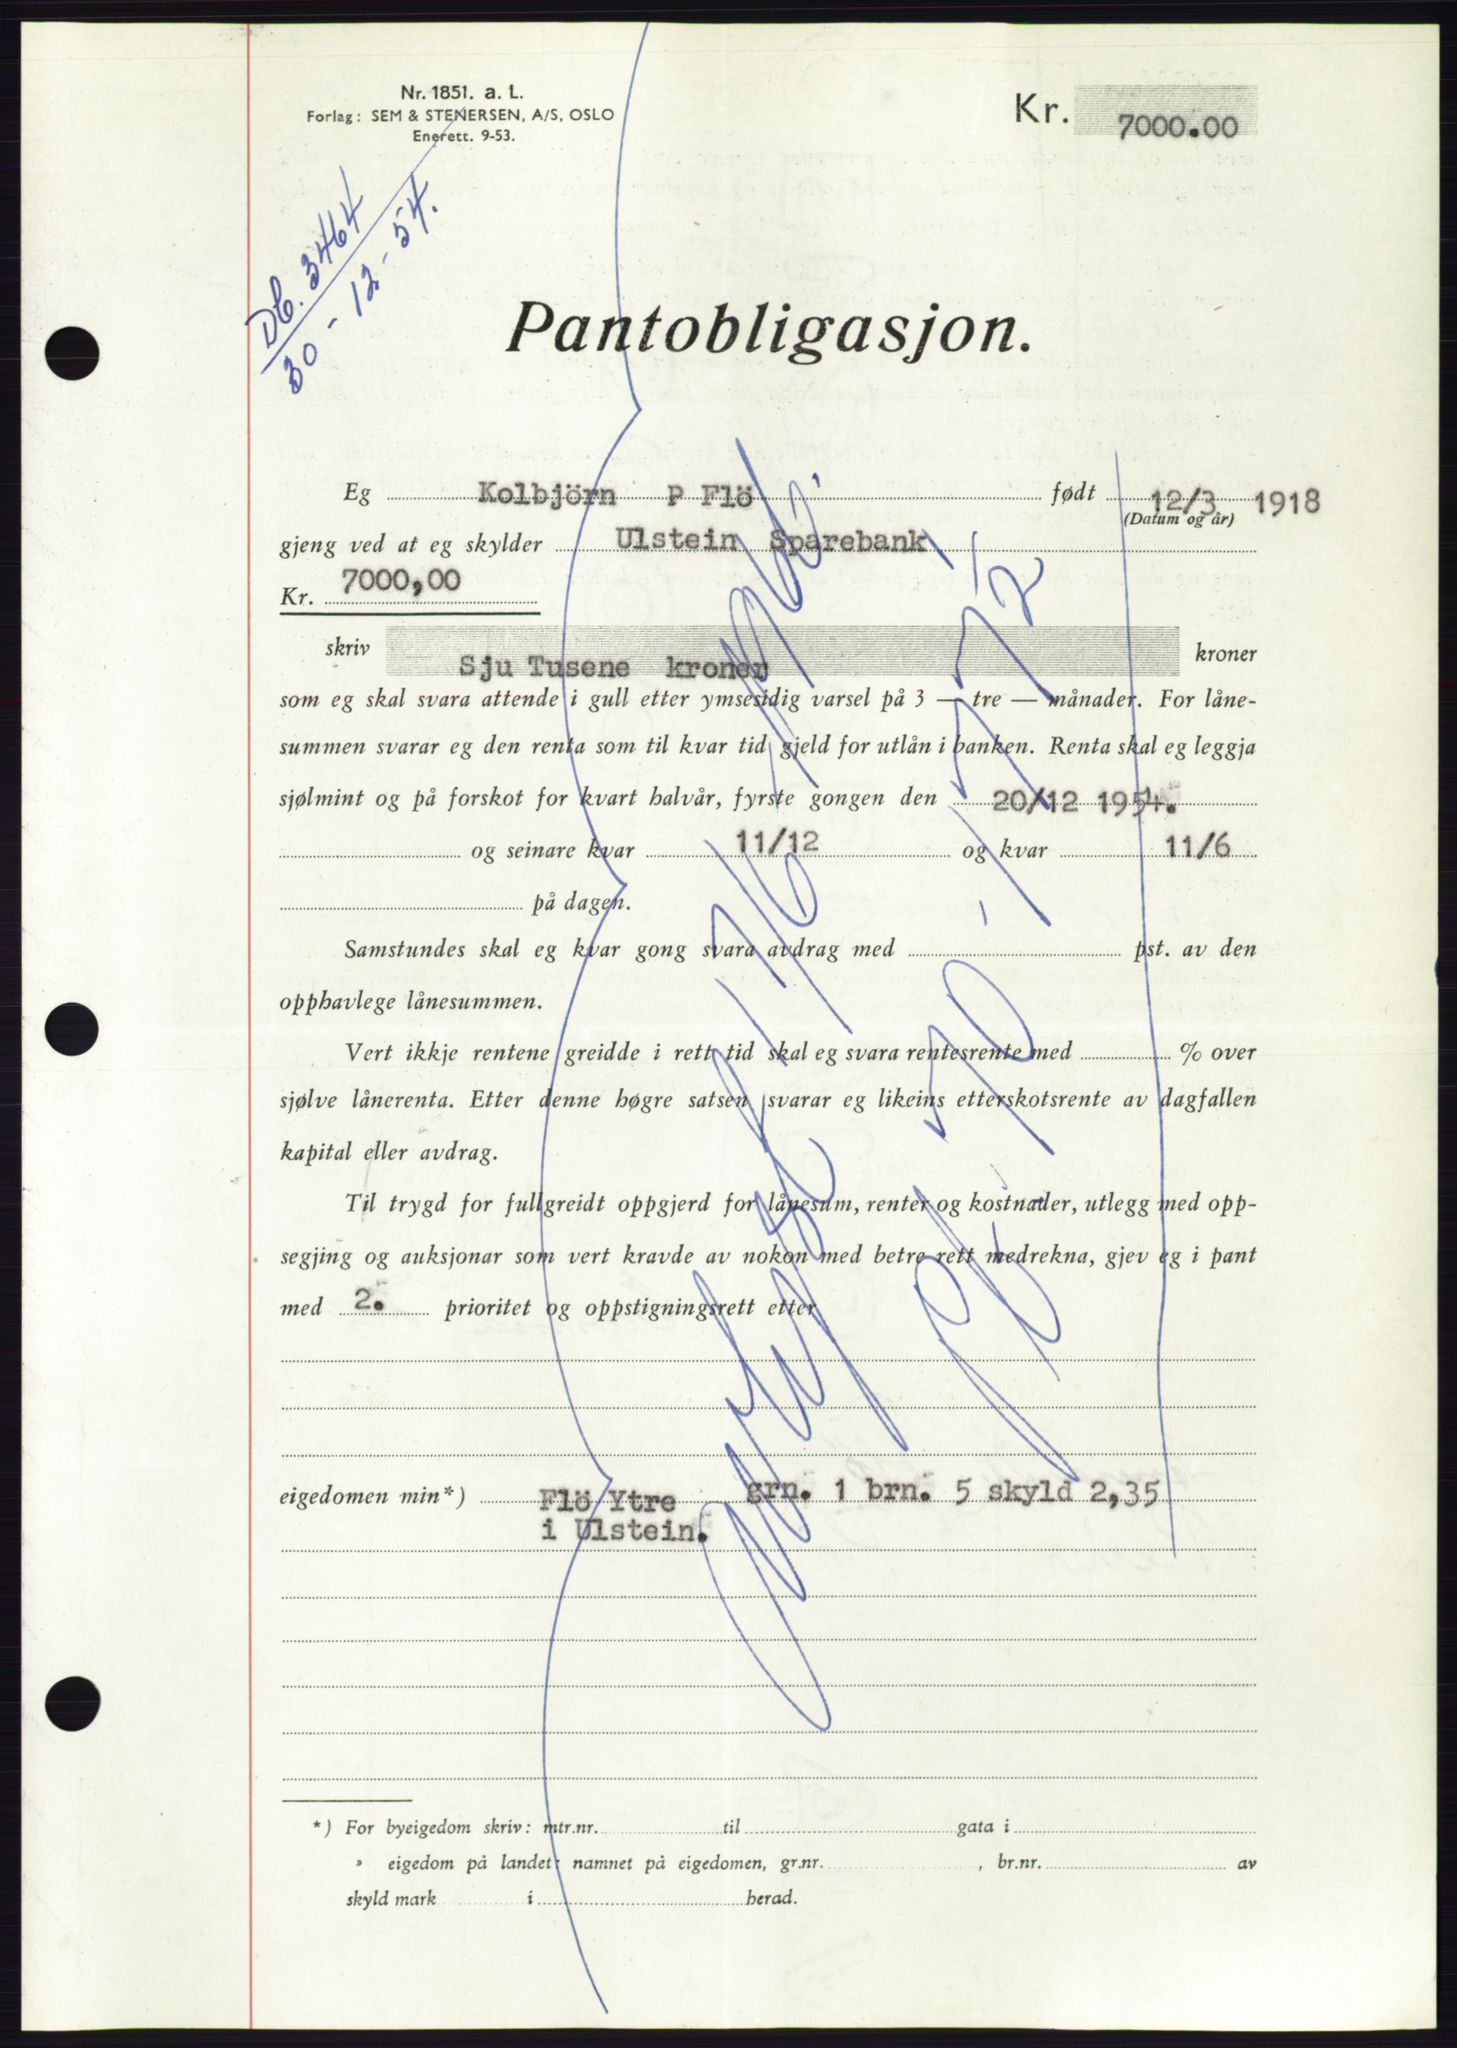 Nr. 1851. a. L.
Forlag: SEM & STENERSEN, A/S, OSLO
Enerett. 9-53.
Kr. 7000.00
Db. 3464
30 - 12 - 54.
Pantobligasjon.
Eg Kolbjörn P Flö født 12/3 1918
(Datum og år)
gjeng ved at eg skylder Ulstein Sparebank
Kr. 7000,00
skriv Sju Tusene kroner kroner
som eg skal svara attende i gull etter ymsesidig varsel på 3 — tre — månader. For låne-
summen svarar eg den renta som til kvar tid gjeld for utlån i banken. Renta skal eg leggja
sjølmint og på forskot for kvart halvår, fyrste gongen den 20/12 1954.
og seinare kvar 11/12 og kvar 11/6
på dagen.
Samstundes skal eg kvar gong svara avdrag med pst. av den
opphavlege lånesummen.
Vert ikkje rentene greidde i rett tid skal eg svara rentesrente med % over
sjølve lånerenta. Etter denne høgre satsen svarar eg likeins etterskotsrente av dagfallen
kapital eller avdrag.
Til trygd for fullgreidt oppgjerd for lånesum, renter og kostnader, utlegg med opp-
segjing og auksjonar som vert kravde av nokon med betre rett medrekna, gjev eg i pant
med 2. prioritet og oppstigningsrett etter
eigedomen min*) Flö Ytre grn. 1 brn. 5 skyld 2,35
i Ulstein.
*) For byeigedom skriv: mtr.nr. til gata i
» eigedom på landet: namnet på eigedomen, gr.nr. , br.nr. av
skyld mark i herad.